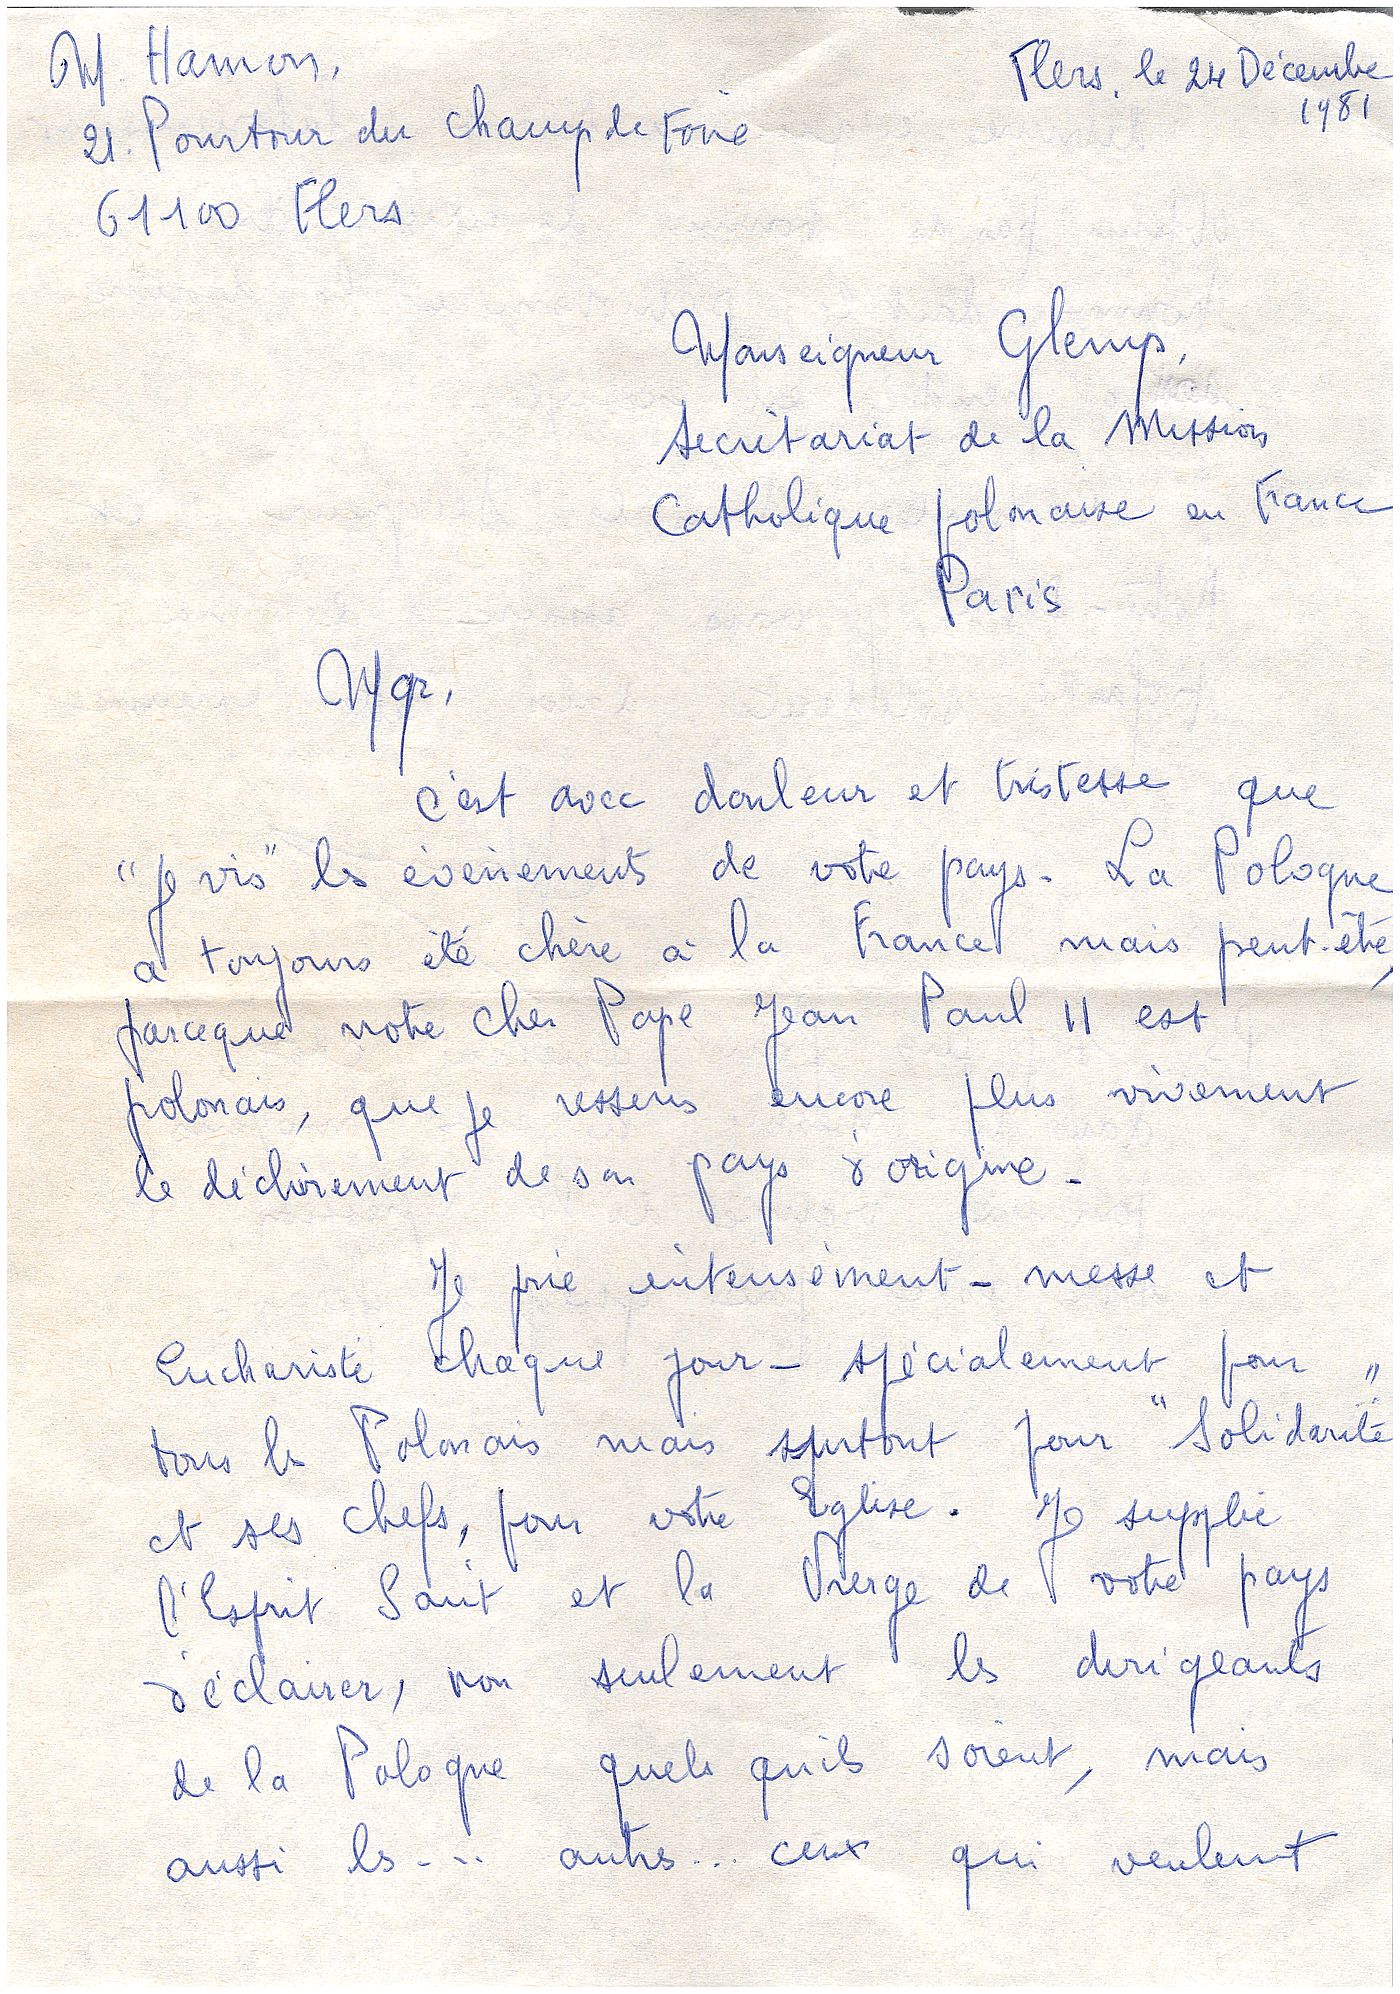 M. Hamon,
Flers, le 24 Décembre
1981
21. Pourtour du champ de Foire
61100 Flers
Monseigneur Glemp,
Secrétariat de la Mission
Catholique polonaise en France
Paris
Mgr,
c'est avec douleur et tristesse que
"je vis" les évènements de votre pays. La Pologne
a toujours été chère à la France mais peut-être,
parceque notre cher Pape Jean Paul II est
polonais, que je ressens encore plus vivement
le déchirement de son pays d'origine.
Je prie intensément - messe et
Eucharistie chaque jour - spécialement pour
tous les Polonais mais surtout pour "Solidarité"
et ses chefs, pour votre Eglise. Je supplie
l'Esprit Saint et la Vierge de votre pays
d'éclairer, non seulement les dirigeants
de la Pologne quels qu'ils soient, mais
aussi les ... autres... ceux qui veulent